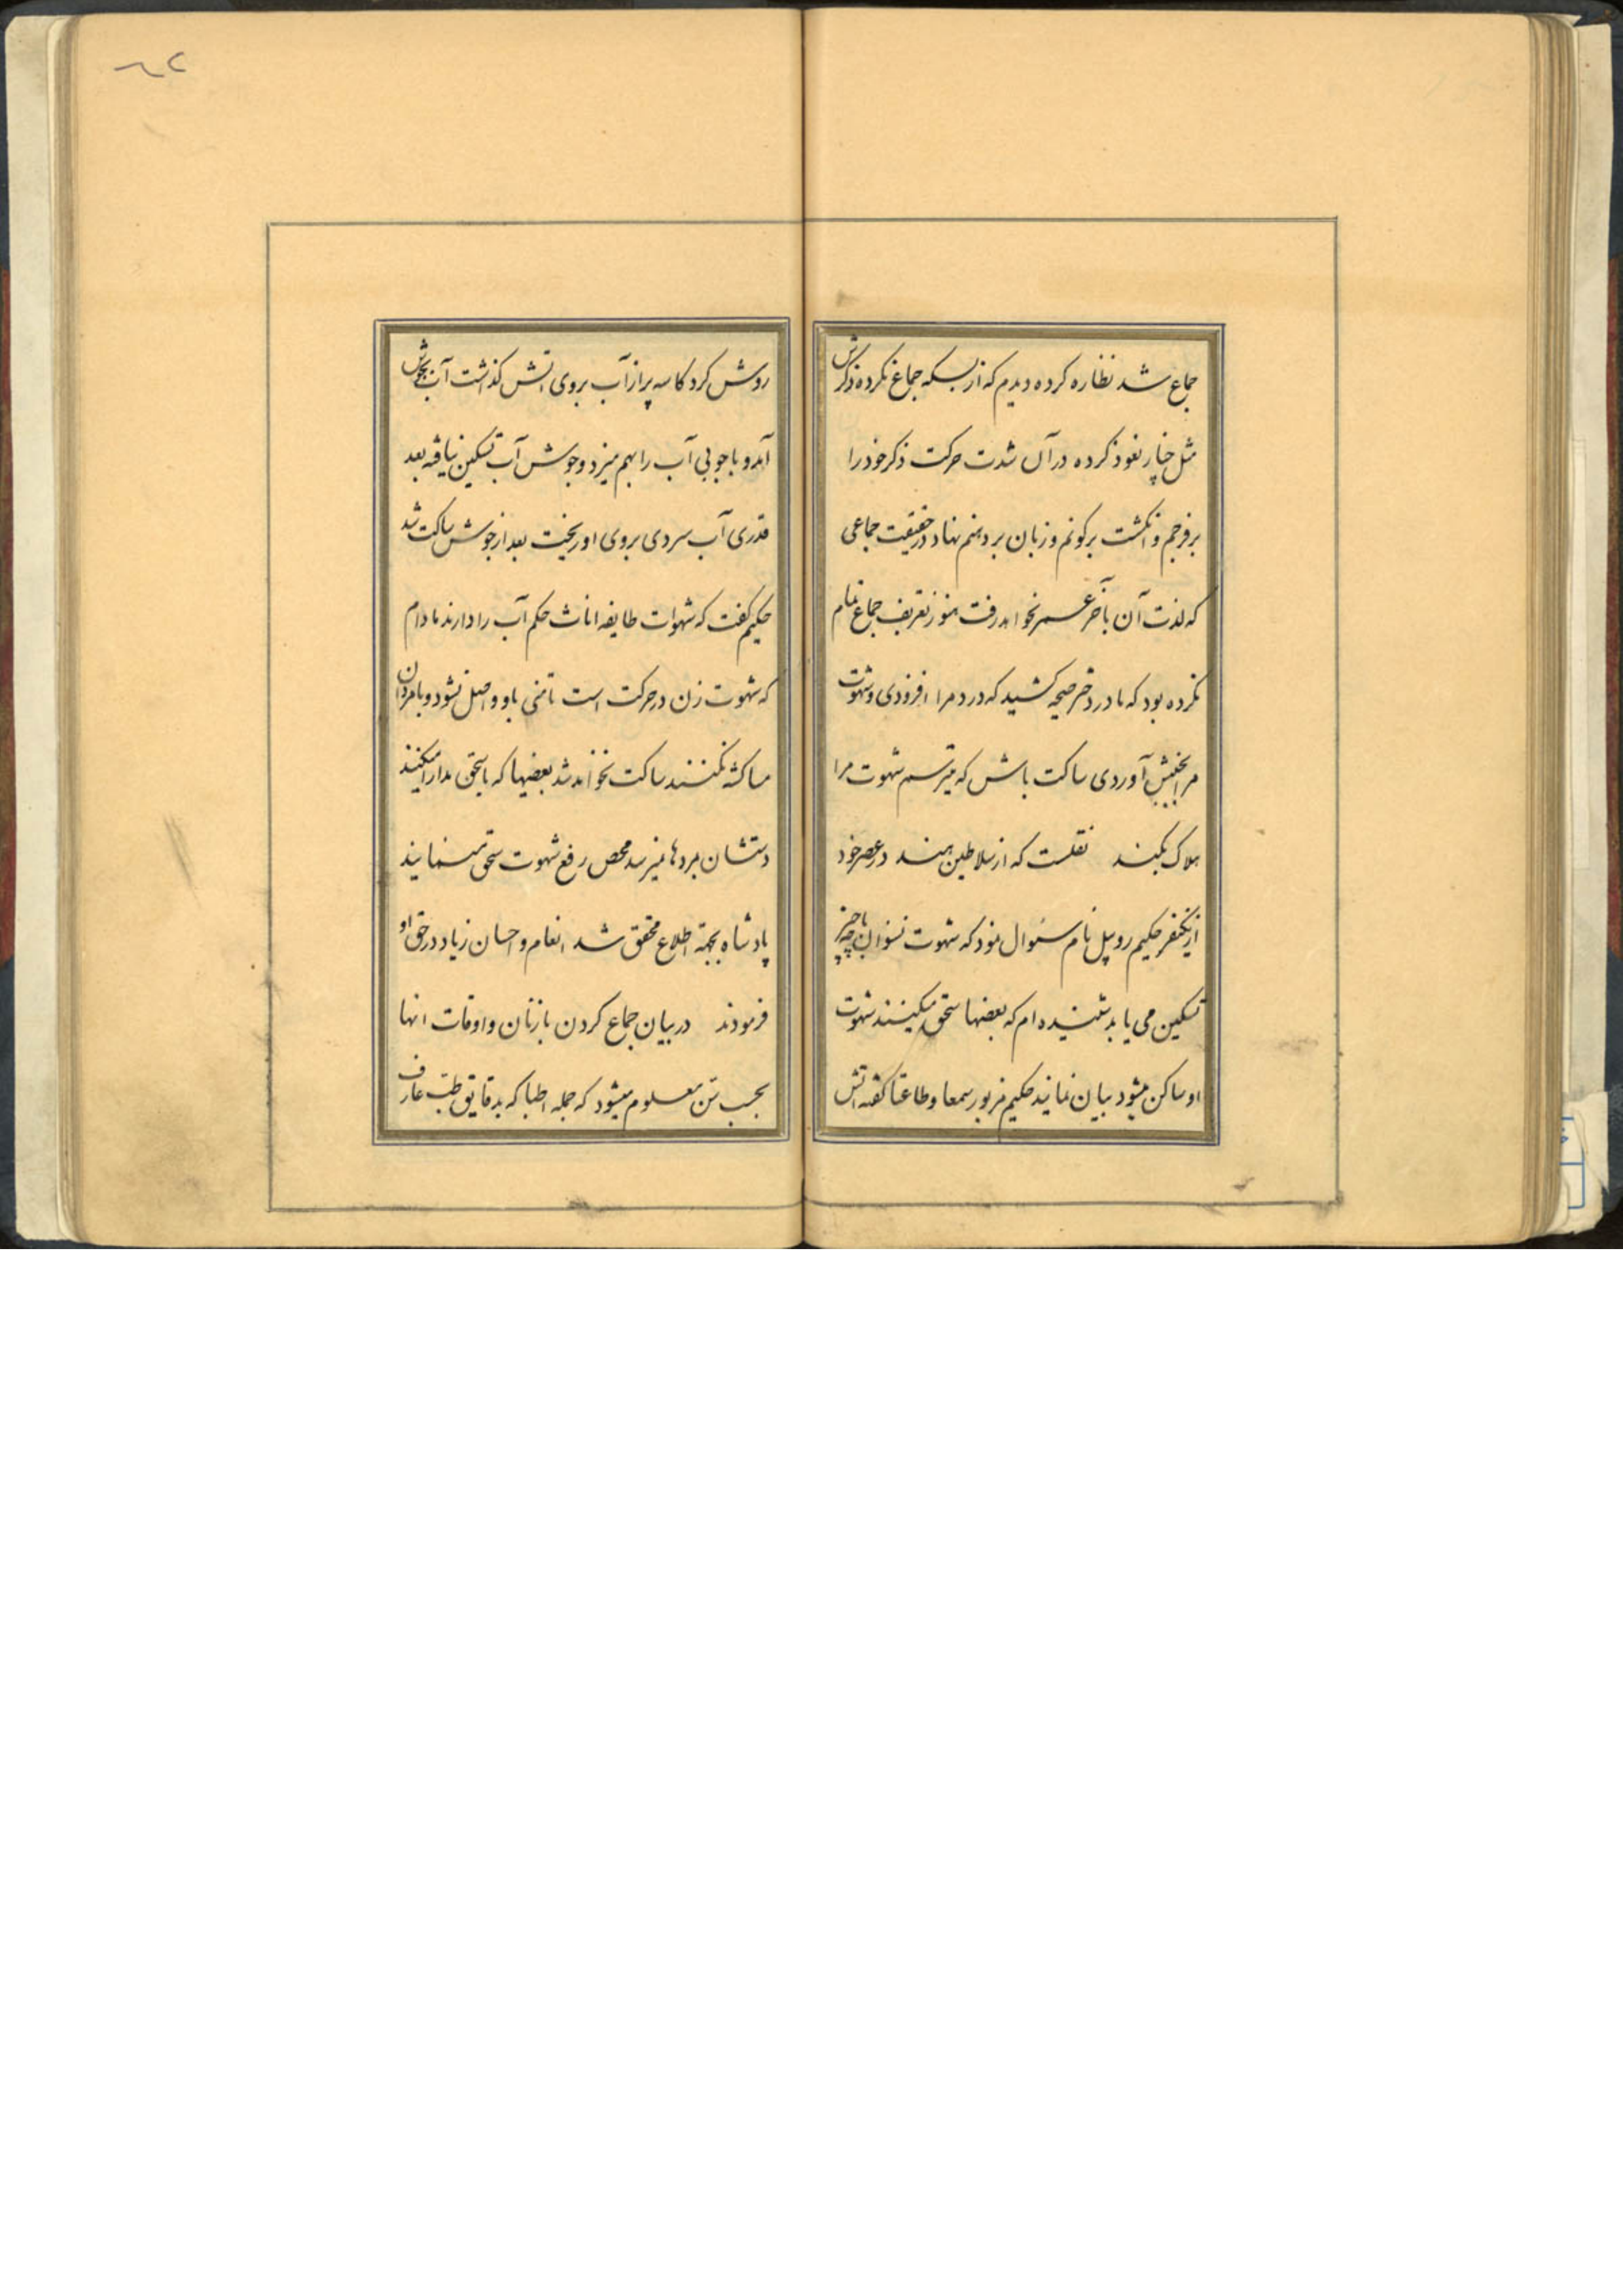 جماع شد نظاره کرده دیدم که از بسکه جماع نکرده ذکرش
مثل خیار نعوذ کرده در آن شدت حرکت ذکر خود را
بر فرجم و انکشت بر کونم و زبان بر دهنم نهاد در حقیقت جماعی
که لذت آن تا آخر عمر نخواهد رفت هنوز تعریف جماع تمام
نکرده بود که مادر دختر صیحه کشید که درد مرا افزودی و شهوت
مرا بجنبش آوردی ساکت باش که میترسم شهوت مرا
هلاک بکند نقلست که از سلاطین هند در عصر خود
از یکنفر حکیم روپیل نام سئوال نمود که شهوت نسوان با چه چیز
تسکین می یابد شنیده ام که بعضها سحق میکنند شهوت
او ساکن میشود بیان نمایند حکیم مزبور سمعا و طاعتا کفته اتش
روشن کرد کاسه پر از آب بروی اتش کذاشت آب بجوش
آمد و با چوبی آب را بهم میزد و جوشش آب تسکین نیافته بعد
قدری آب سردی بروی او ریخت بعد از جوش ساکت شد
حکیم کفت که شهوات طایفه اناث حکم آب را دارند مادام
که شهوت زن در حرکت است تا منی باو واصل نشود و با مردان
ساکت نخواهد شد بعضیها که با سحق مدارا میکنند
دستشان بمردها نمیرسد محض رفع شهوت سحق مینمایند
پادشاه بجهة اطلاع محقق شد انعام و احسان زیاد در حق او
فرمودند در بیان جماع کردن با زنان و اوقات انها
بحسب سن معلوم میشود که جمله اطبا که بدقایق طب عارف